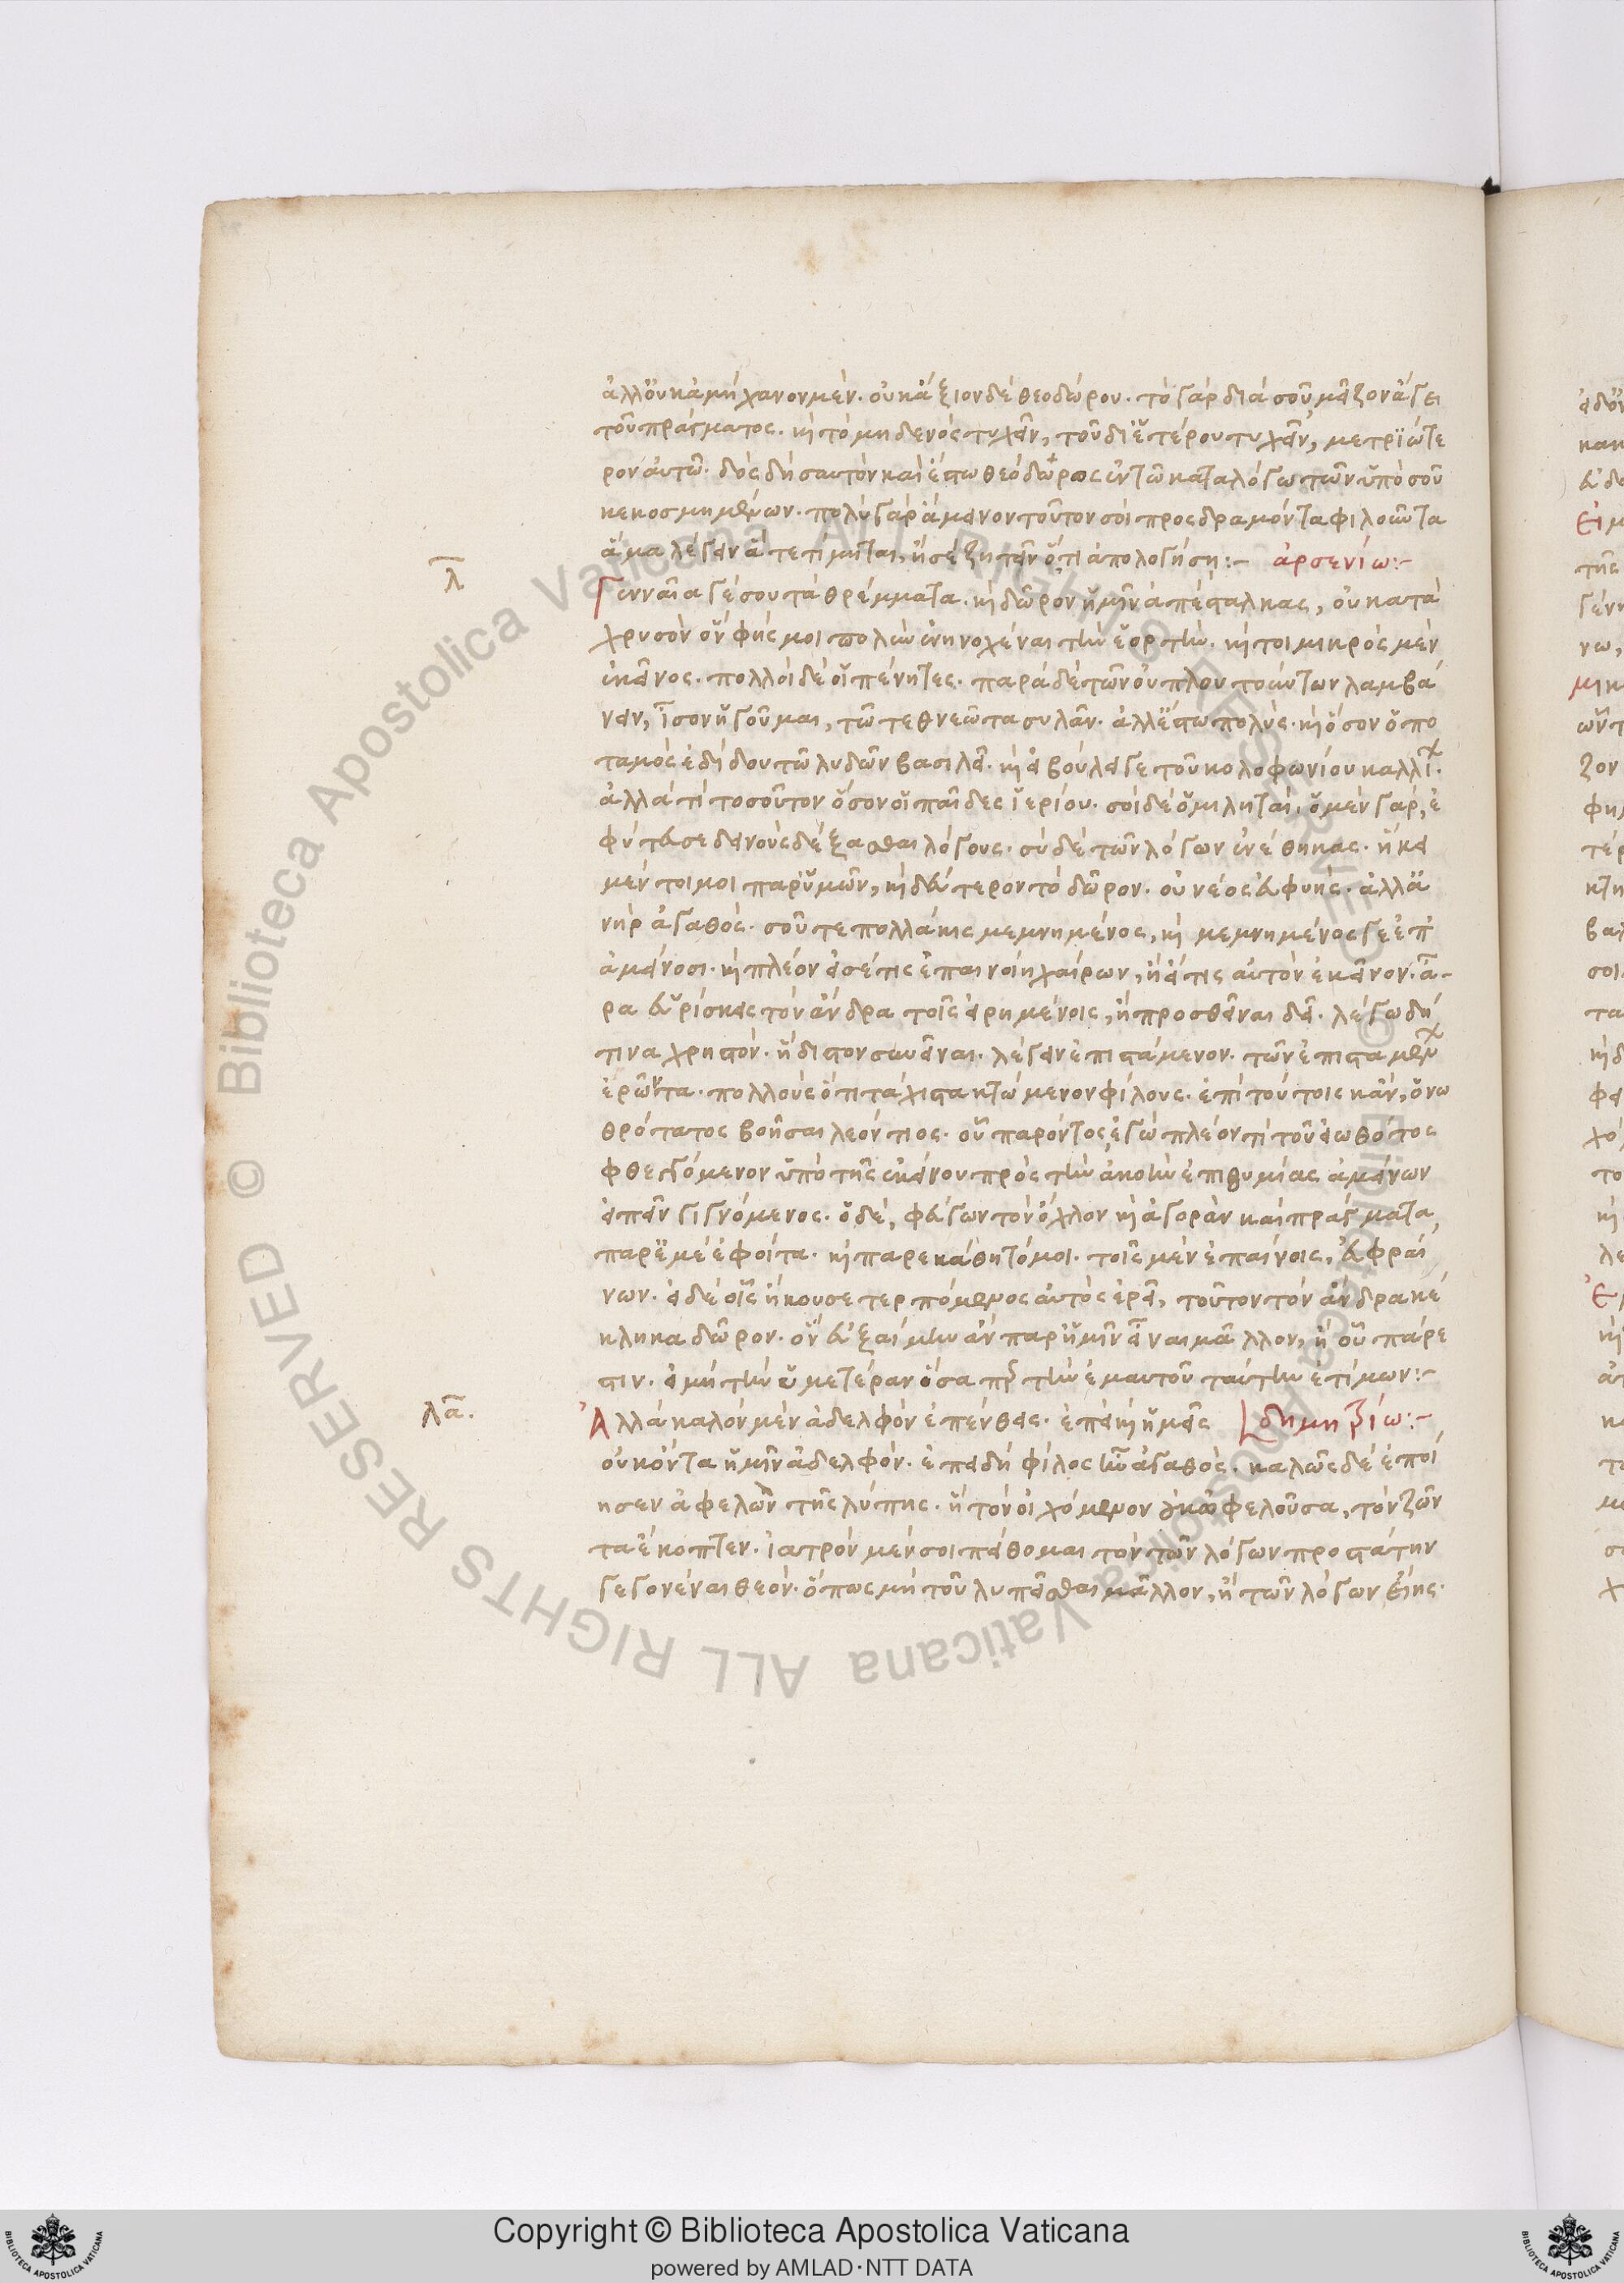 ἀλλ' οὐκ ἀμήχανον μέν. οὐκ ἄξιον δὲ θεοδώρου. τὸ γὰρ διὰ σοῦ μεῖζον ἄγει
τοῦ πράγματος. καὶ τὸ μηδενὸς τυχεῖν, τοῦ δι' ἑτέρου τυχεῖν, μετριώτε
ρον αὐτῶ. δὸς δὴ σαυτὸν καὶ ἔστω θεόδωρος ἐν τῶ καταλόγω τῶν ὑπὸ σοῦ
κεκοσμημένων. πολὺ γὰρ ἄμεινον τοῦτον σοὶ προσδραμόντα φιλοῦντα
ἅμα λέγειν ἃ τετίμηται, ἢ σὲ ζητεῖν ὅ,τι ἀπολογήση:- ἀρσενίω:-
λ
Γενναῖα γέ σου τὰ θρέμματα. καὶ δῶρον ἡμῖν ἀπέσταλκας, οὐ κατὰ
χρυσὸν ὃν φής μοι πολὺν ἐνηνοχέναι τὴν ἑορτήν. καί τοι μικρὸς μὲν
ἐκεῖνος. πολλοὶ δὲ οἱ πένητες. παρὰ δὲ τῶν οὐ πλουτούντων λαμβά
νειν, ἴσον ἡγοῦμαι, τῶ τεθνεῶτα συλᾶν. ἀλλ' ἔστω πολύς. καὶ ὅσον ὁ πο
ταμὸς ἐδίδου τῶ λυδῶν βασιλεῖ. καὶ εἰ βούλει γε τοῦ κολοφωνίου καλλίχ.
ἀλλὰ τί τοσοῦτον ὅσον οἱ παῖδες ἱερίου. σοὶ δὲ ὁμιληταί. ὁ μὲν γὰρ, ἐ
φύτευσε δεινοὺς δέξασθαι λόγους. σὺ δὲ τῶν λόγων ἐνέθηκας. ἥκει
μέν τοι μοι παρ' ὑμῶν, καὶ δεύτερον τὸ δῶρον. οὐ νέος εὐφυής. ἀλλ' ἀ
νὴρ ἀγαθός. σοῦ τε πολλάκις μεμνημένος, καὶ μεμνημένος γε ἐπ'
ἀμείνοσι. καὶ πλέον εἰ σέ τις ἐπαινοίη χαίρων, ἢ εἴ τις αὐτὸν ἐκεῖνον. ἆ-
ρα εὑρίσκεις τὸν ἄνδρα τοῖς εἰρημένοις, ἢ προσθεῖναι δεῖ. λέγω δή
τινα χρηστόν. ἥδιστον συνεῖναι. λέγειν ἐπιστάμενον. τῶν ἐπισταμένων
ἐρῶντα. πολλοὺς ὅτι τάχιστα κτώμενον φίλους. ἐπὶ τούτοις κἂν, ὁ νω
θρότατος βοῆσαι λεόντιος. οὗ παρόντος, ἐγὼ πλέον τι τοῦ εἰωθότος
φθεγγόμενον ὑπὸ τῆς ἐκείνου πρὸς τὴν ἀκοὴν ἐπιθυμίας ἀμείνων
εἰπεῖν γιγνόμενος. ὁ δὲ, φεύγων τὸν ὄχλον καὶ ἀγορὰν καὶ πράγματα,
παρ' ἐμὲ ἐφοίτα. καὶ παρεκάθητό μοι. τοῖς μὲν ἐπαίνοις, εὐφραί
νων. εἰ δὲ οἷς ἤκουσε τερπόμενος αὐτὸς ἐρεῖ, τοῦτον τὸν ἄνδρα κέ
κληκα δῶρον. ὃν εὐξαίμην ἂν παρ' ἡμῖν εἶναι μᾶλλον, ἢ οὗ πάρε
στιν. εἰ μὴ τὴν ὑμετέραν ἴσα πρὸς τὴν ἐμαυτοῦ ταύτην ἐτίμων:-
λα.
Ἀλλὰ καλὸν μὲν ἀδελφὸν ἐπένθεις. ἐπεὶ καὶ ἡμεῖς δημητρίω:-
οὐκ ὄντα ἡμῖν ἀδελφόν. ἐπειδὴ φίλος ἦν ἀγαθός. καλῶς δὲ ἐποί
ησεν ἀφελὼν τῆς λύπης. ἣ τὸν οἰχόμενον οὐκ ὠφελοῦσα, τὸν ζῶν
τα ἔκοπτεν. ἰατρὸν μὲν σοι πείθομαι τὸν τῶν λόγων προστάτην
γεγονέναι θεόν. ὅπως μὴ τοῦ λυπεῖσθαι μᾶλλον, ἢ τῶν λόγων εἴης.
Copyright © Biblioteca Apostolica Vaticana
powered by AMLAD·NTT DATA